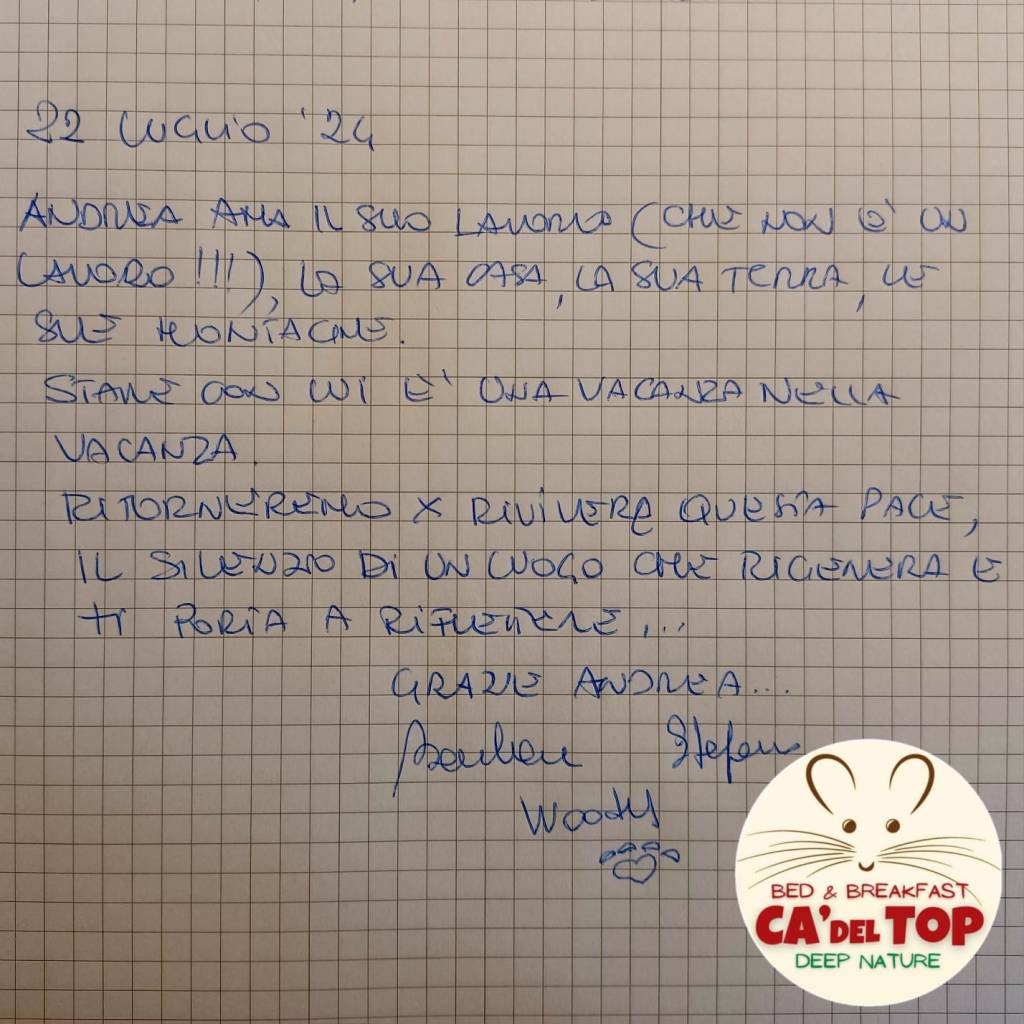 22 LUGLIO '24
ANDREA AMA IL SUO LAVORO (CHE NON È UN
LAVORO!!!), LA SUA CASA, LA SUA TERRA, LE
SUE MONTAGNE.
STARE CON LUI È UNA VACANZA NELLA
VACANZA.
RITORNEREMO X RIVIVERE QUESTA PACE,
IL SILENZIO DI UN LUOGO CHE RIGENERA E
TI PORTA A RIFLETTERE,...
GRAZIE ANDREA...
Woody
BED & BREAKFAST
CA' DEL TOP
DEEP NATURE